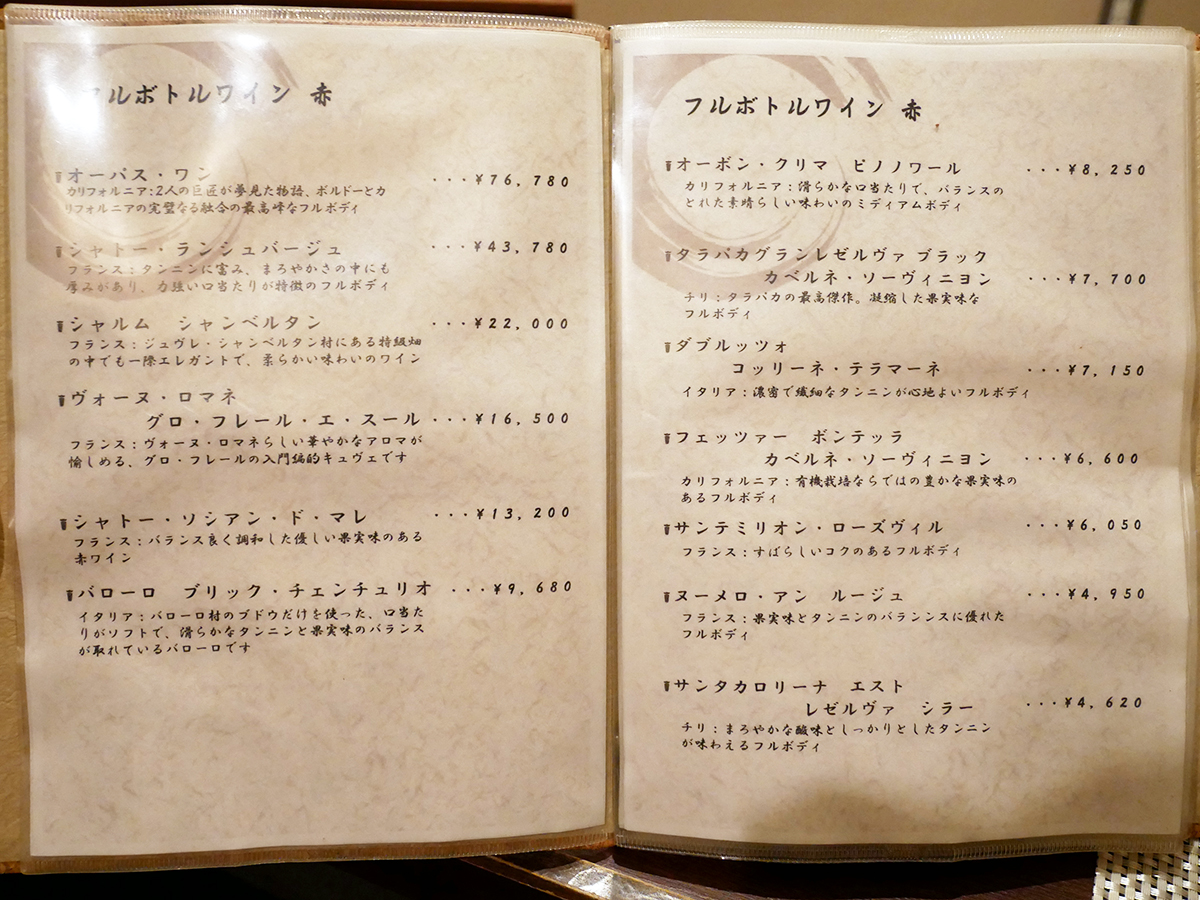 フルボトルワイン 赤
オーパス・ワン ・・・¥76,780
カリフォルニア:2人の巨匠が夢見た物語、ボルドーとカ
リフォルニアの完璧なる融合の最高峰なフルボディ
シャトー・ランシュバージュ ・・・¥43,780
フランス:タンニンに富み、まろやかさの中にも
厚みがあり、力強い口当たりが特徴のフルボディ
シャルム シャンベルタン ・・・¥22,000
フランス:ジュヴレ・シャンベルタン村にある特級畑
の中でも一際エレガントで、柔らかい味わいのワイン
ヴォーヌ・ロマネ
グロ・フレール・エ・スール ・・・¥16,500
フランス:ヴォーヌ・ロマネらしい華やかなアロマが
愉しめる、グロ・フレールの入門編的キュヴェです
シャトー・ソシアン・ド・マレ ・・・¥13,200
フランス:バランス良く調和した優しい果実味のある
赤ワイン
バローロ ブリック・チェンチュリオ ・・・¥9,680
イタリア:バローロ村のブドウだけを使った、口当た
りがソフトで、滑らかなタンニンと果実味のバランス
が取れているバローロです
フルボトルワイン 赤
オーボン・クリマ ピノノワール ・・・¥8,250
カリフォルニア:滑らかな口当たりで、バランスの
とれた素晴らしい味わいのミディアムボディ
タラパカグランレゼルヴァ ブラック
カベルネ・ソーヴィニヨン ・・・¥7,700
チリ:タラパカの最高傑作。凝縮した果実味な
フルボディ
ダブルッツォ
コッリーネ・テラマーネ ・・・¥7,150
イタリア:濃密で繊細なタンニンが心地よいフルボディ
フェッツァー ボンテッラ
カベルネ・ソーヴィニヨン ・・・¥6,600
カリフォルニア:有機栽培ならではの豊かな果実味の
あるフルボディ
サンテミリオン・ローズヴィル ・・・¥6,050
フランス:すばらしいコクのあるフルボディ
ヌーメロ・アン ルージュ ・・・¥4,950
フランス:果実味とタンニンのバランンスに優れた
フルボディ
サンタカロリーナ エスト
レゼルヴァ シラー ・・・¥4,620
チリ:まろやかな酸味としっかりとしたタンニン
が味わえるフルボディ